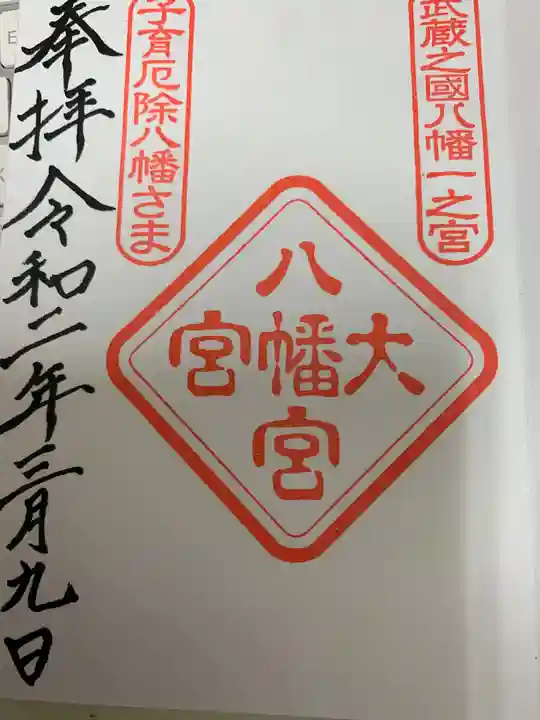 武蔵之國八幡一之宮
大
八幡宮
宮
子育厄除八幡さま
奉拝令和二年三月九日